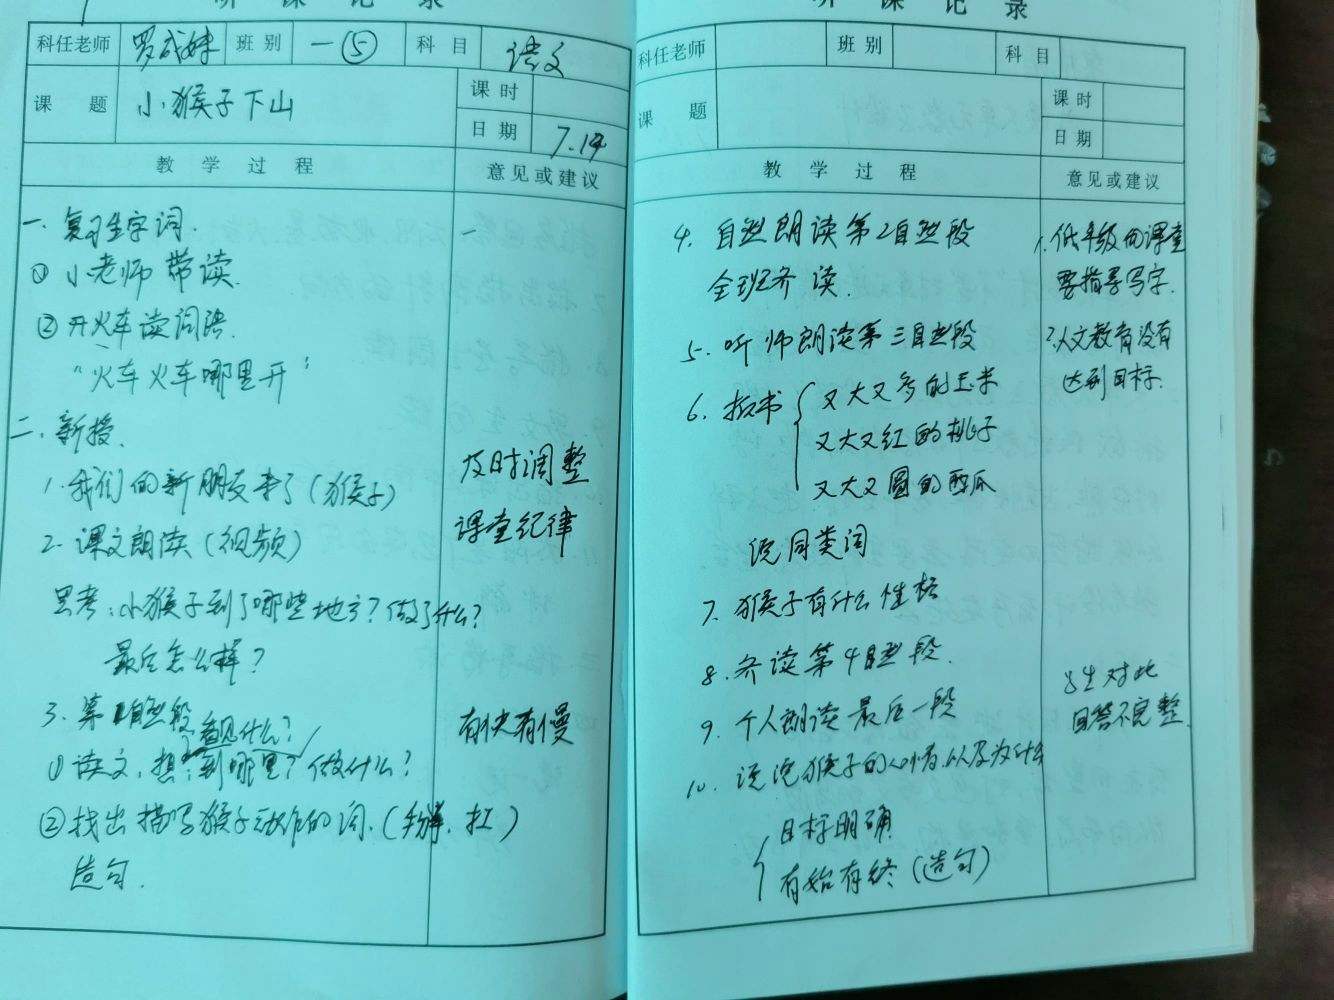 听课记录
科任老师 罗成妹 班别 一⑤ 科目 语文
课题 小猴子下山 课时
日期 7.14
教学过程 意见或建议
一、复习生字词.
① 小老师带读.
② 开火车读词语.
“火车火车哪里开”
二、新授.
1. 我们的新朋友来了(猴子)
及时调整
2. 课文朗读(视频)
课堂纪律
思考:小猴子到了哪些地方?做了什么?
最后怎么样?
3. 第1自然段
看见什么?
有快有慢
① 读文,想:到哪里?做什么?
② 找出描写猴子动作的词.(掰、扛)
造句.
听课记录
科任老师 班别 科目
课题 课时
日期
教学过程 意见或建议
4. 自然朗读第2自然段
全班齐读.
5. 听师朗读第三自然段
6. 板书 { 又大又多的玉米
又大又红的桃子
又大又圆的西瓜
说同类词
7. 猴子有什么性格
8. 齐读第4自然段.
9. 个人朗读最后一段
10. 说说猴子的心情.以及为什么
{ 目标明确
有始有终(造句)
1. 低年级的课堂
要指导写字.
2. 人文教育没有
达到目标.
学生对此
回答不完整.